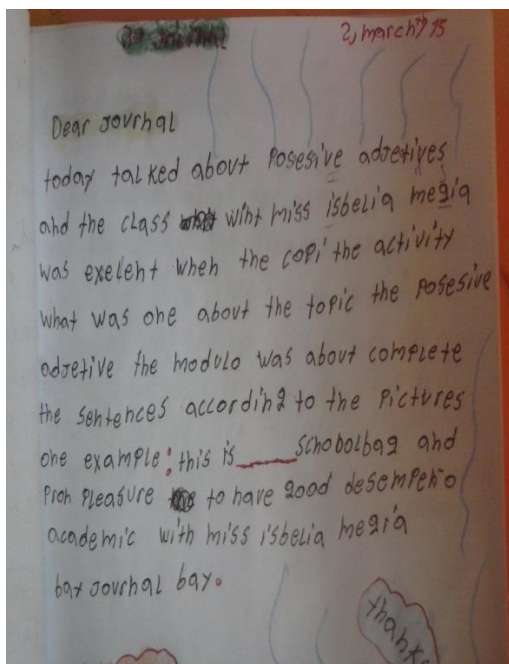 2, march/15
Dear Journal
today talked about Posesive adjetives
and the class wiht miss isbelia megia
was exelent when the copi the activity
what was one about the topic the posesive
adjetive the modulo was about complete
the sentences according to the Pictures
one example: this is ____ schoolbag and
pleasure to have good desempeño
academic with miss isbelia megia
bay Journal bay.
thanks